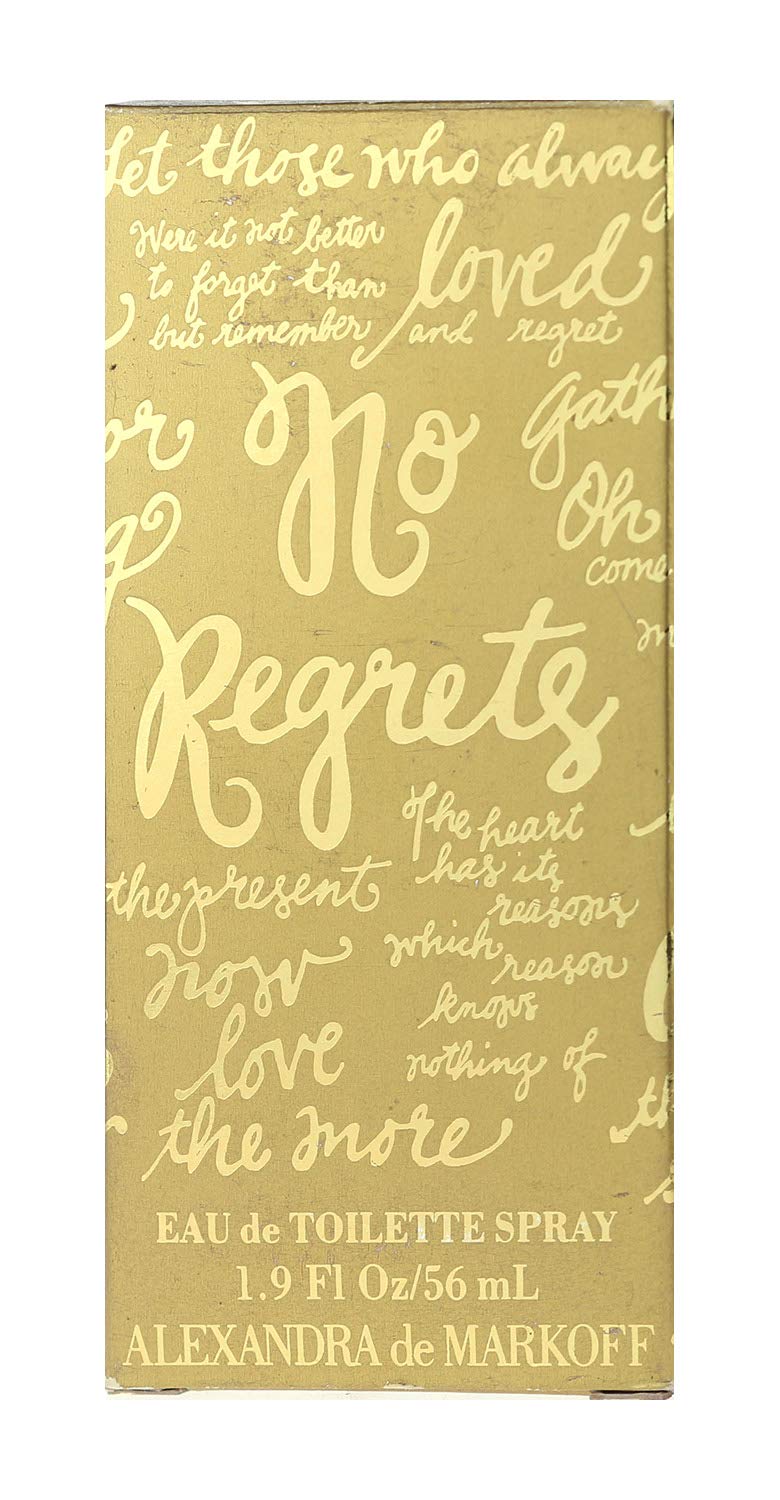 Let those who always
Were it not better
to forget than
but remember and regret
loved
No
Regrets
or
g
Gath
Oh
come
m
The heart
has its
reasons
which
reason
knows
nothing of
the present
now
love
the more
th
s
EAU de TOILETTE SPRAY
1.9 Fl Oz/56 mL
ALEXANDRA de MARKOFF